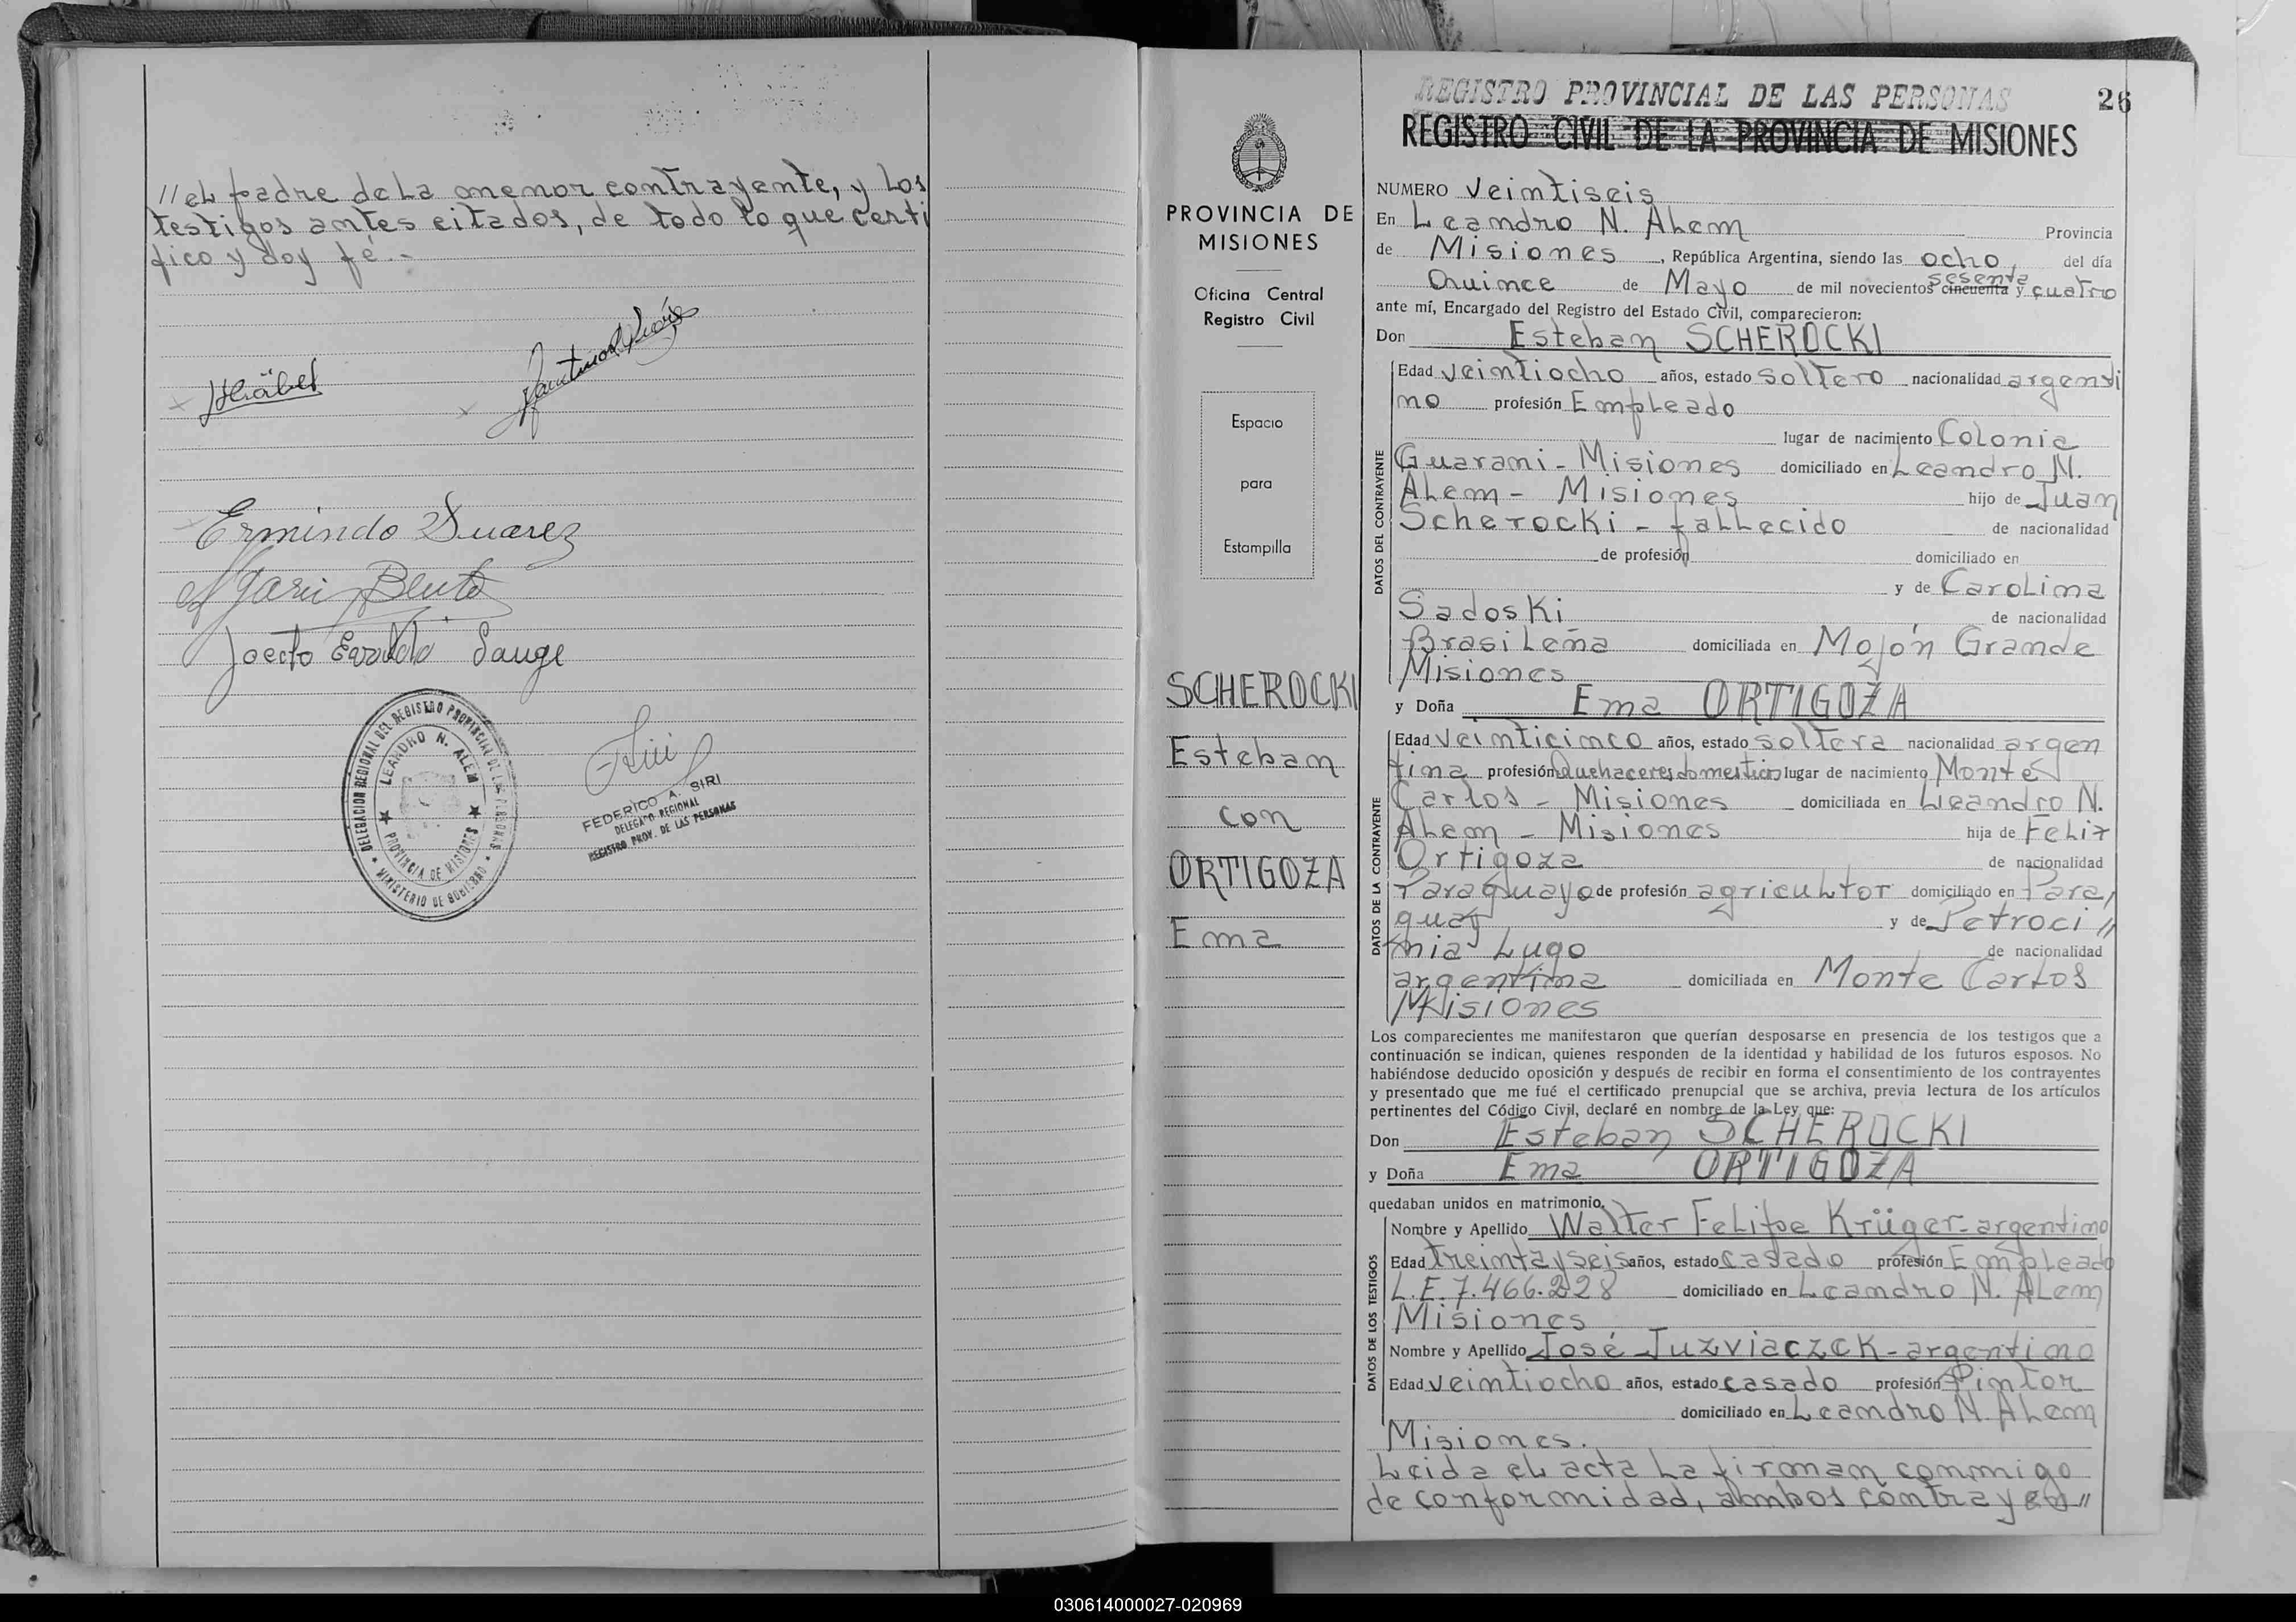 //el padre de la menor contrayente, y los
testigos antes citados, de todo lo que certi
fico y doy fé.-
Ermindo Suarez
LEANDRO N. ALEM
PROVINCIA DE MISIONES
DELEGACION REGIONAL DEL REGISTRO PROVINCIAL DE LAS PERSONAS
MINISTERIO DE GOBIERNO
FEDERICO A. SIRI
DELEGADO REGIONAL
REGISTRO PROV. DE LAS PERSONAS
PROVINCIA DE
MISIONES
Oficina Central
Registro Civil
Espacio
para
Estampilla
SCHEROCKI
Esteban
con
ORTIGOZA
Ema
REGISTRO PROVINCIAL DE LAS PERSONAS
26
REGISTRO CIVIL DE LA PROVINCIA DE MISIONES
NUMERO Veintiseis
En Leandro N. Alem Provincia
de Misiones, República Argentina, siendo las ocho del día
Quince de Mayo de mil novecientos cincuenta sesenta y cuatro
ante mí, Encargado del Registro del Estado Civil, comparecieron:
Don Esteban SCHEROCKI
DATOS DEL CONTRAYENTE
Edad veintiocho años, estado soltero nacionalidad argenti
no profesión Empleado
lugar de nacimiento Colonia
Guarani - Misiones domiciliado en Leandro N.
Alem - Misiones hijo de Juan
Scherocki - fallecido de nacionalidad
de profesión domiciliado en
y de Carolina
Sadoski de nacionalidad
Brasileña domiciliada en Mojón Grande
Misiones
y Doña Ema ORTIGOZA
DATOS DE LA CONTRAYENTE
Edad veinticinco años, estado soltera nacionalidad argen
tina profesión Quehaceres domesticos lugar de nacimiento Monte
Carlos - Misiones domiciliada en Leandro N.
Alem - Misiones hija de Felix
Ortigoza de nacionalidad
Paraguayo de profesión agricultor domiciliado en Para
guay y de Petroci//
nia Lugo de nacionalidad
argentina domiciliada en Monte Carlos
Misiones
Los comparecientes me manifestaron que querían desposarse en presencia de los testigos que a
continuación se indican, quienes responden de la identidad y habilidad de los futuros esposos. No
habiéndose deducido oposición y después de recibir en forma el consentimiento de los contrayentes
y presentado que me fué el certificado prenupcial que se archiva, previa lectura de los artículos
pertinentes del Código Civil, declaré en nombre de la Ley que:
Don Esteban SCHEROCKI
y Doña Ema ORTIGOZA
quedaban unidos en matrimonio.
DATOS DE LOS TESTIGOS
Nombre y Apellido Walter Felipe Krüger - argentino
Edad treinta y seis años, estado casado profesión Empleado
L.E. 7.466.228 domiciliado en Leandro N. Alem
Misiones
Nombre y Apellido José Juzviaczek - argentino
Edad veintiocho años, estado casado profesión Pintor
domiciliado en Leandro N. Alem
Misiones.
Leida el acta la firman conmigo
de conformidad, ambos contrayen//
030614000027-020969